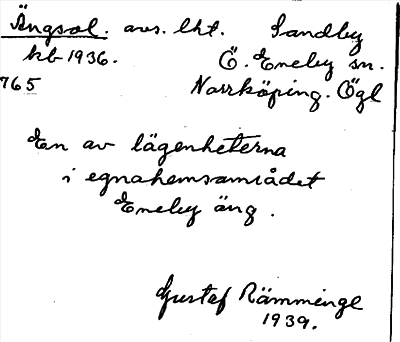 Ängsol. avs. lht. Sandby
kb 1936. Ö. Eneby sn.
765 Norrköping. Ögl
En av lägenheterna
i egnahemsområdet
Eneby äng.
Gustaf Rämminge
1939.